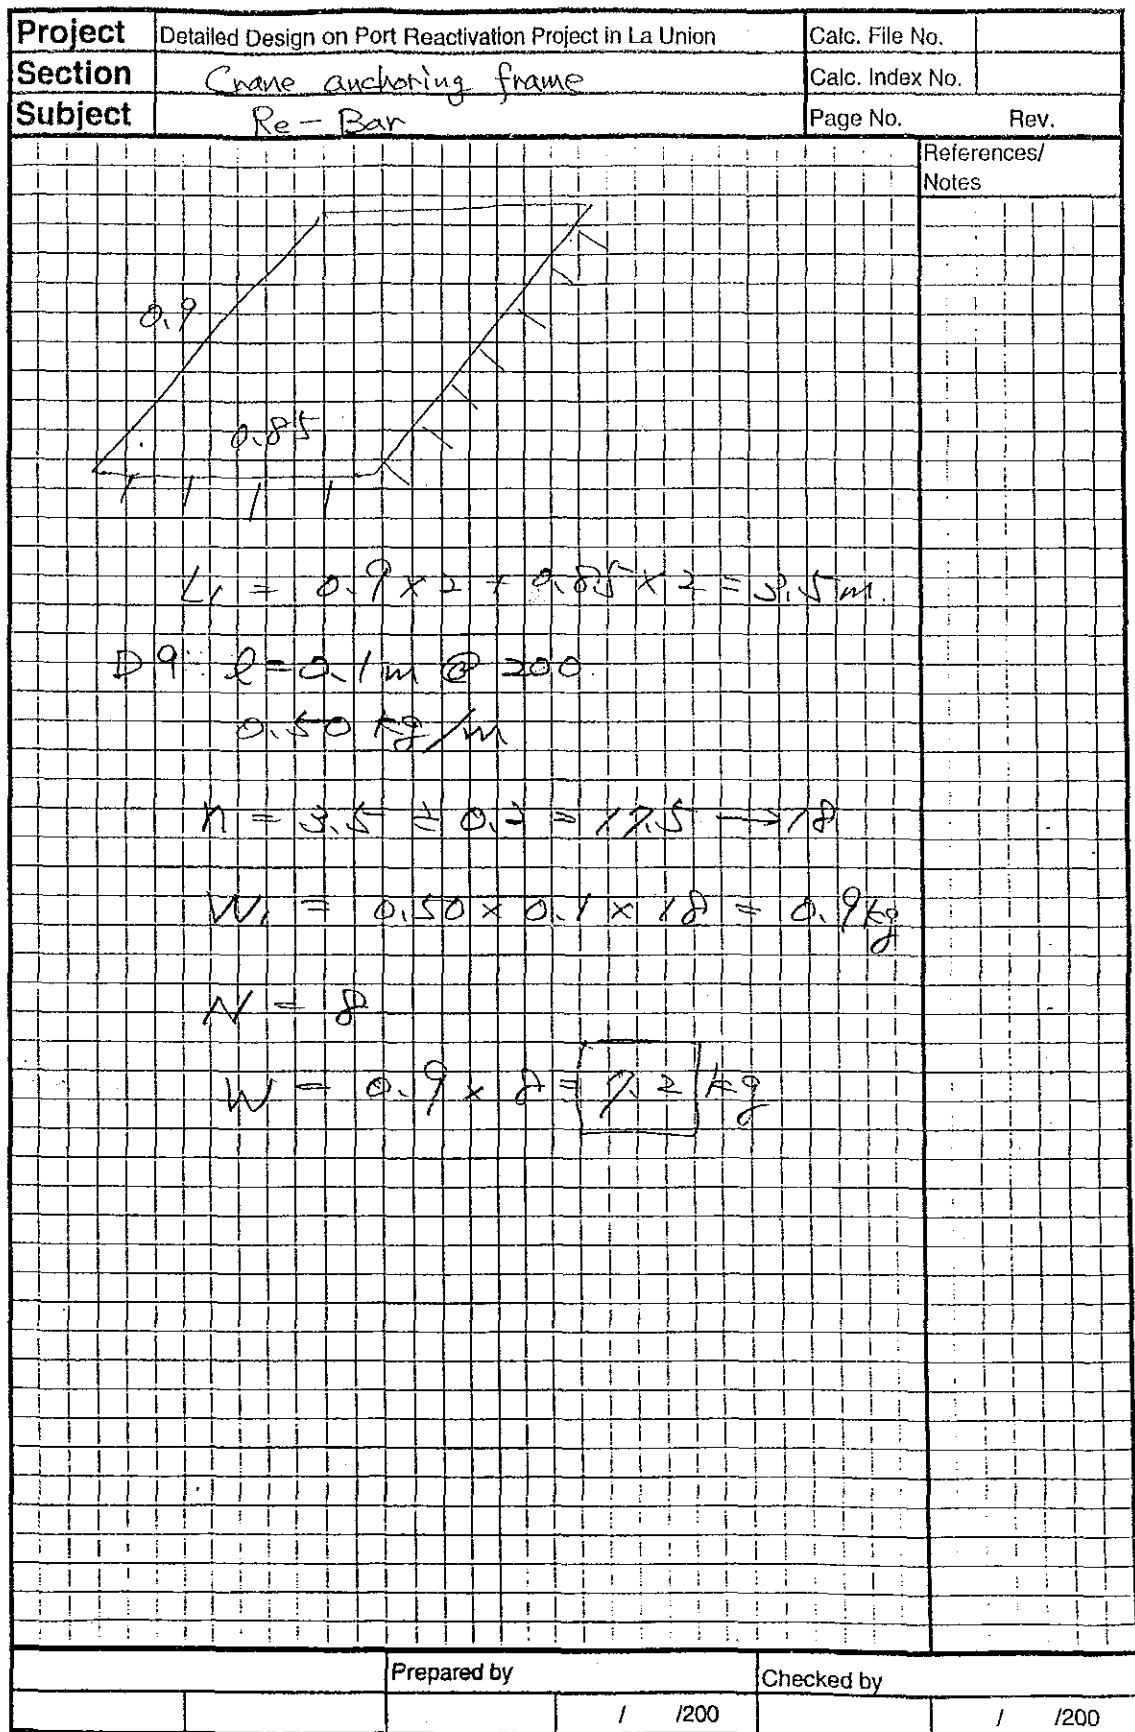 Project Detailed Design on Port Reactivation Project in La Union Calc. File No.
Section Crane anchoring frame Calc. Index No.
Subject Re-Bar Page No. Rev.
References/
Notes
0.9
0.85
L₁ = 0.9 × 2 + 0.85 × 2 = 3.5 m.
D9: ℓ = 0.1 m @ 200
0.50 kg/m
n = 3.5 ÷ 0.2 = 17.5 → 18
W₁ = 0.50 × 0.1 × 18 = 0.9 kg
N = 8
W = 0.9 × 8 = 7.2 kg
Prepared by Checked by
/ /200 / /200